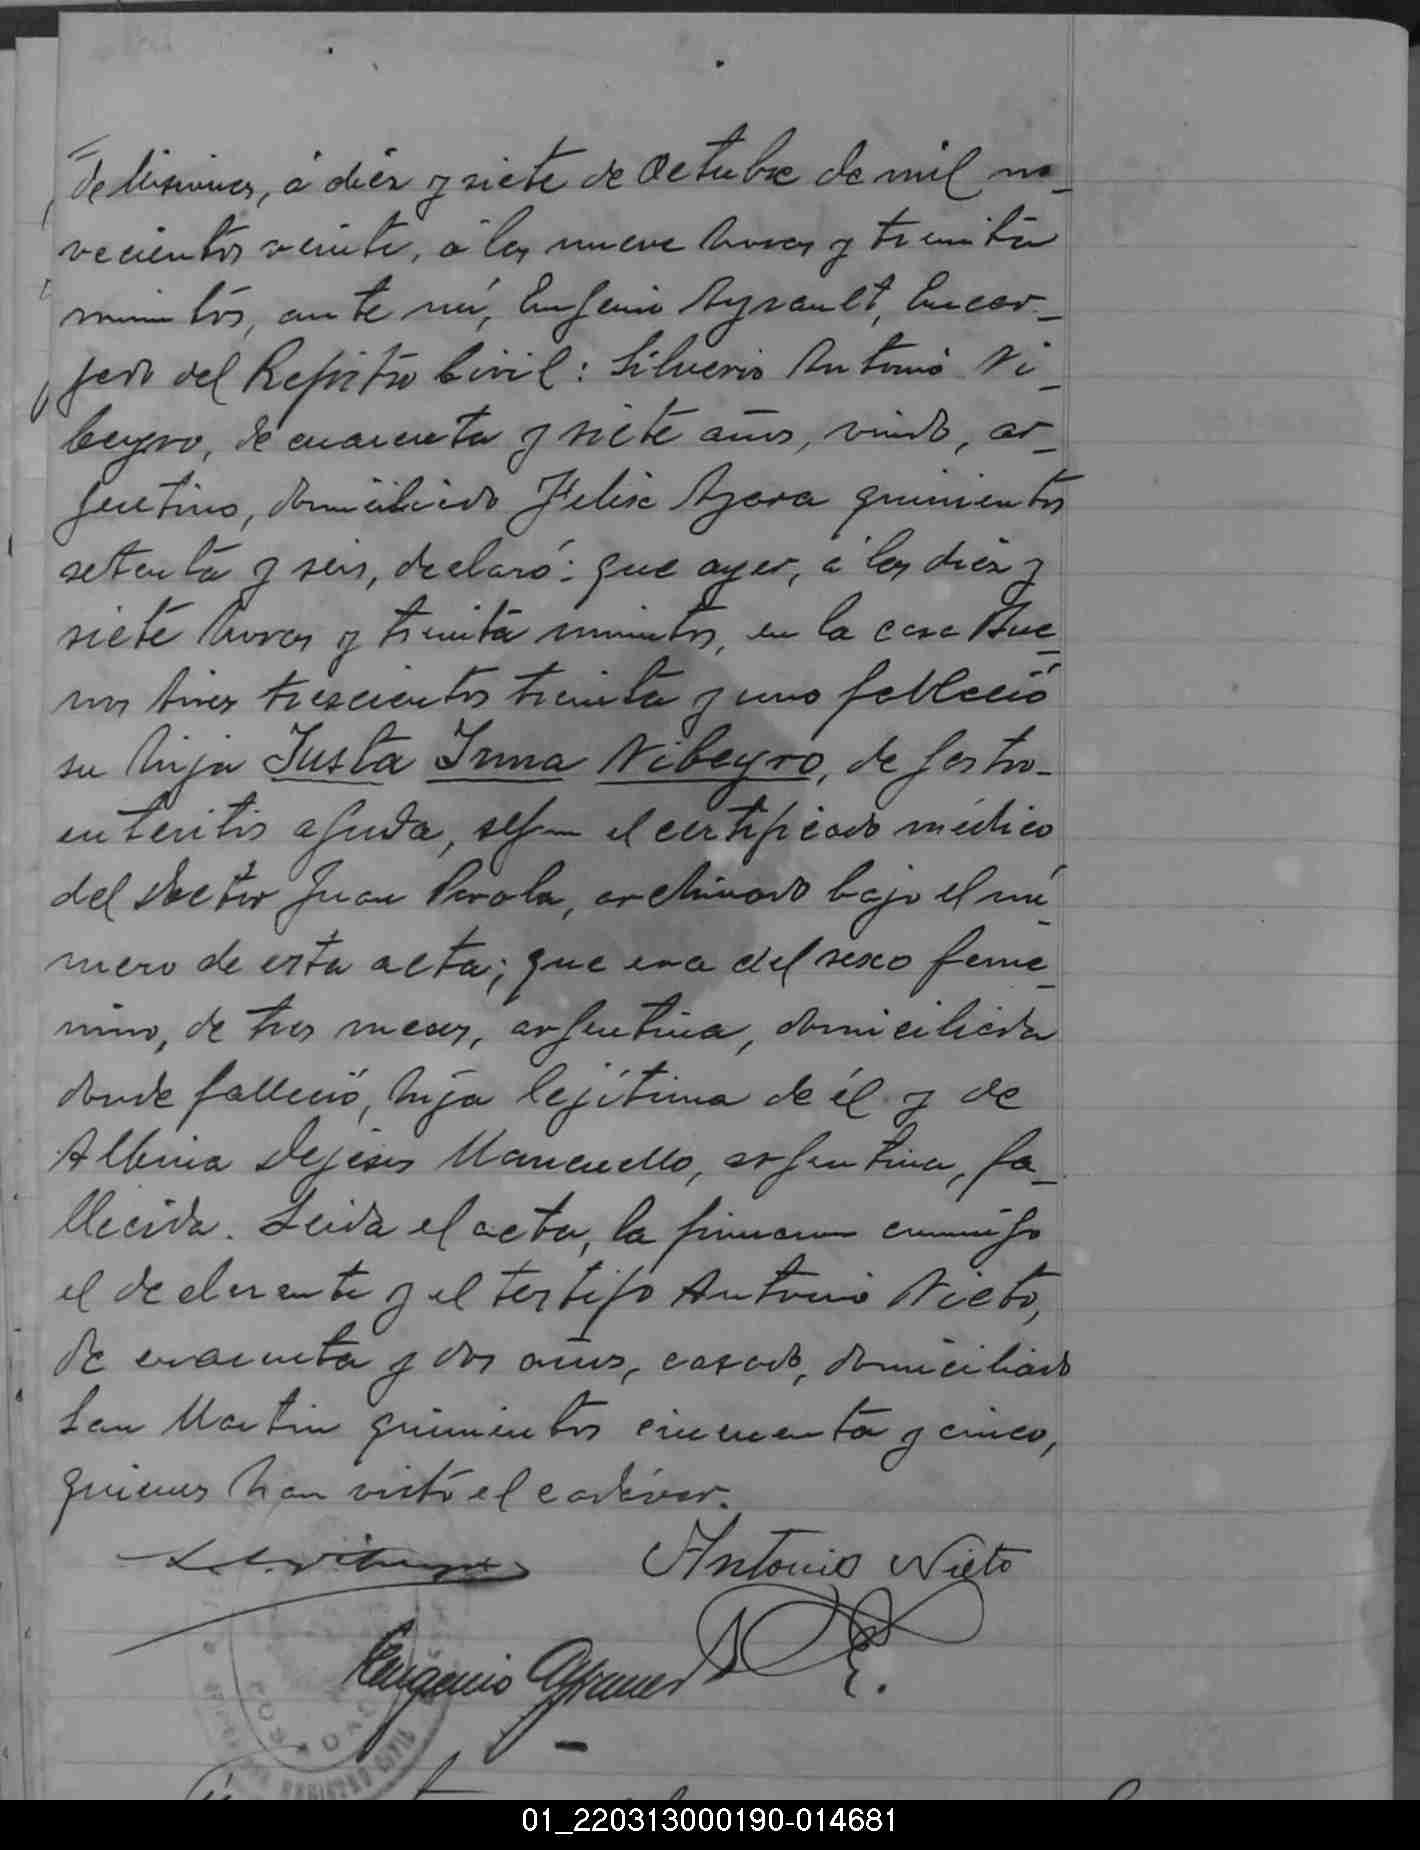 de Misiones, á diéz y siete de Octubre de mil no_
vecientos veinte, á las nueve horas y treinta
minutos, ante mí, Eugenio Ayrault, Encar_
gado del Registro Civil: Silverio Antonio Ni_
beyro, de cuarenta y siete años, viudo, ar_
gentino, domiciliado Felix Azara quinientos
setenta y seis, declaró: que ayer, á las diéz y
siete horas y treinta minutos, en la casa Bue_
nos Aires trescientos treinta y uno falleció
su hija Justa Irma Nibeyro, de gastro_
enteritis aguda, segun el certificado médico
del Doctor Juan Parola, archivado bajo el nú_
mero de esta acta; que era del sexo feme_
nino, de tres meses, argentina, domiciliada
donde falleció, hija lejítima de él y de
Albina Dejesús Mancuello, argentina, fa_
llecida. Leida el acta, la firmaron conmigo
el declarante y el testigo Antonio Nieto,
de cuarenta y dos años, casado, domiciliado
San Martin quinientos cincuenta y cinco,
quienes han visto el cadáver.
Antonio Nieto
Eugenio Ayrault
E.
POSADAS
REGISTRO CIVIL
01_220313000190-014681